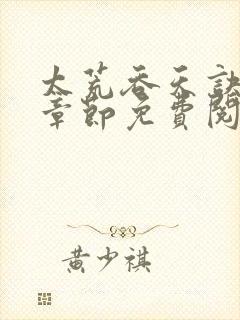 太荒吞天訣
章節免費閱
黃少祺